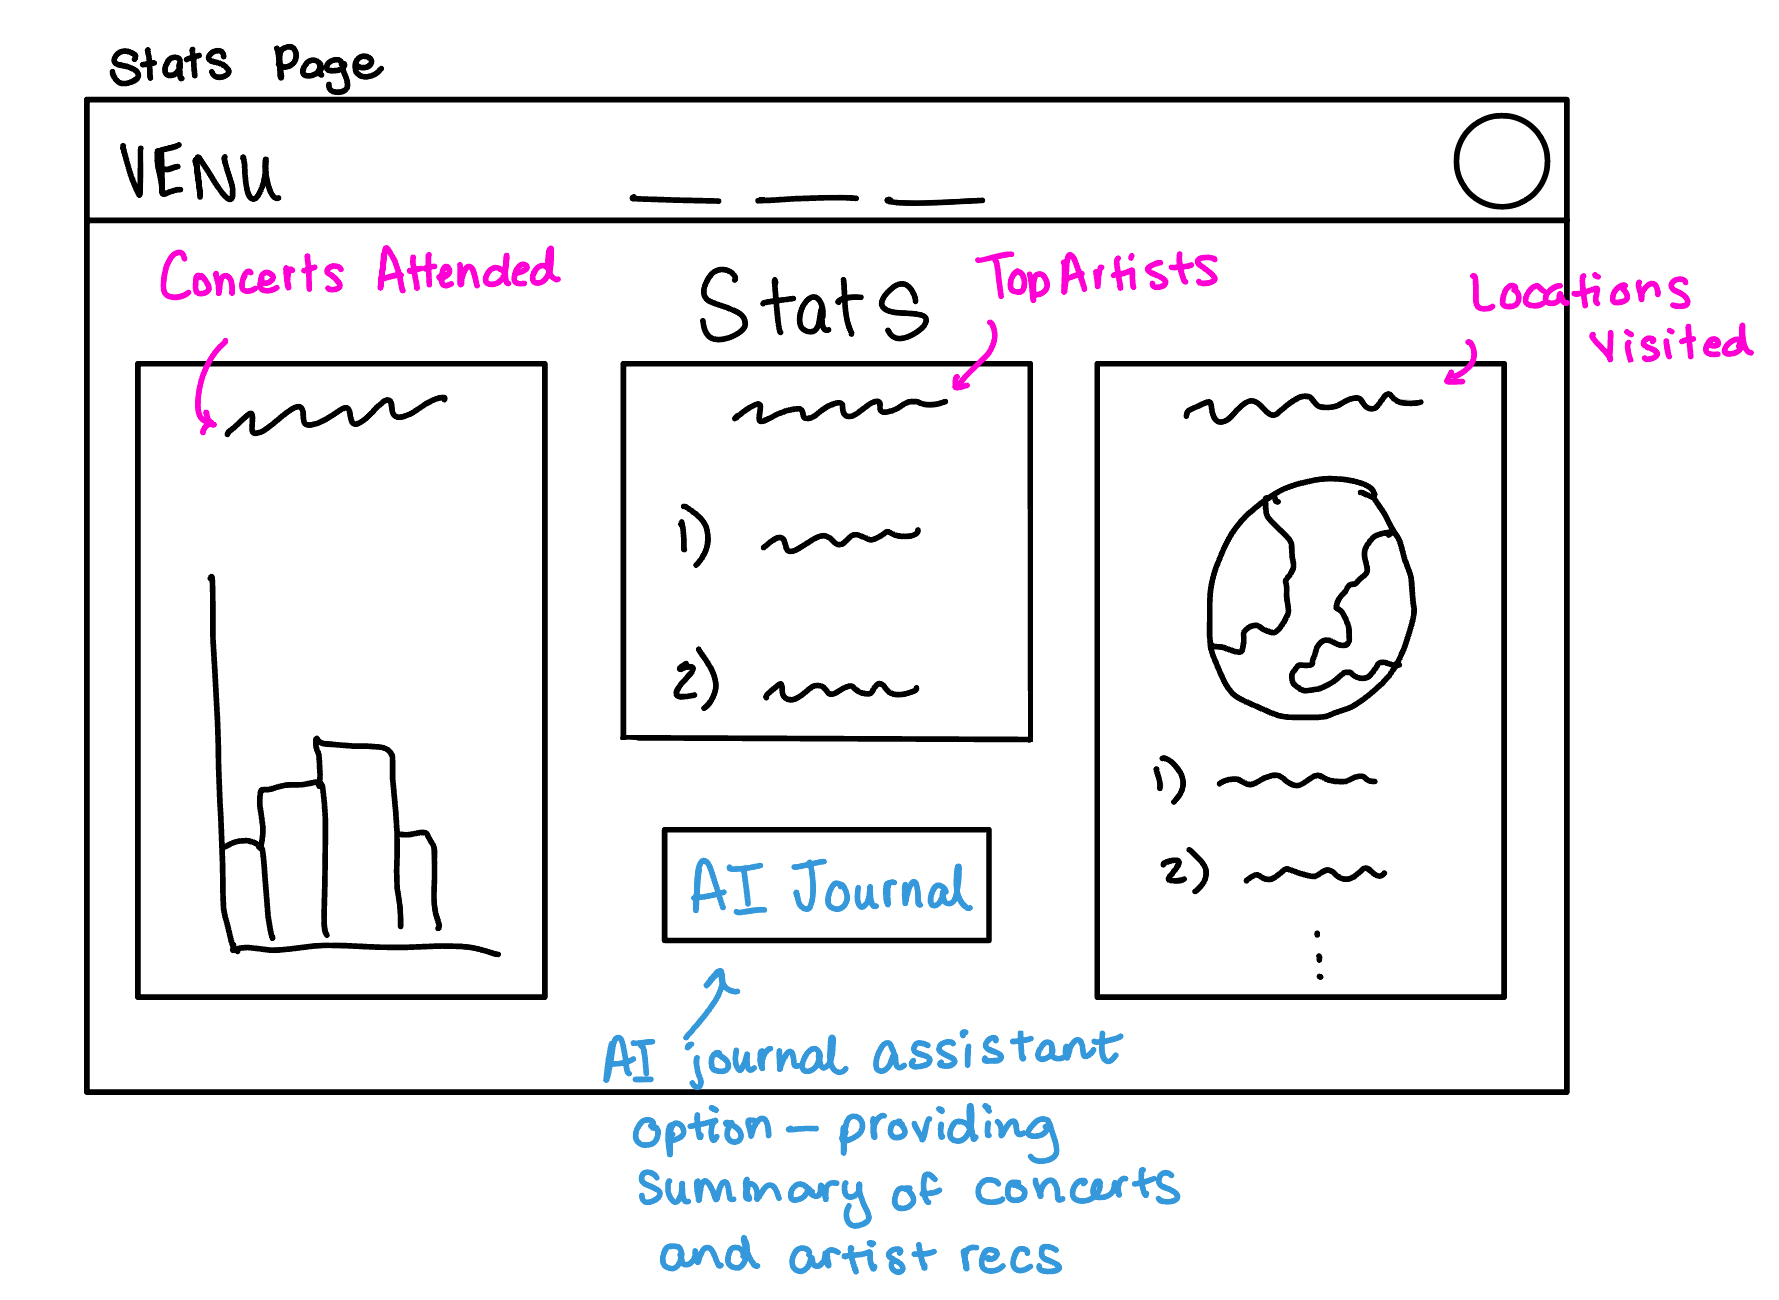 Stats Page
VENU
Concerts Attended
Stats
Top Artists
Locations
Visited
1)
2)
1)
2)
AI Journal
AI journal assistant
option – providing
summary of concerts
and artist recs